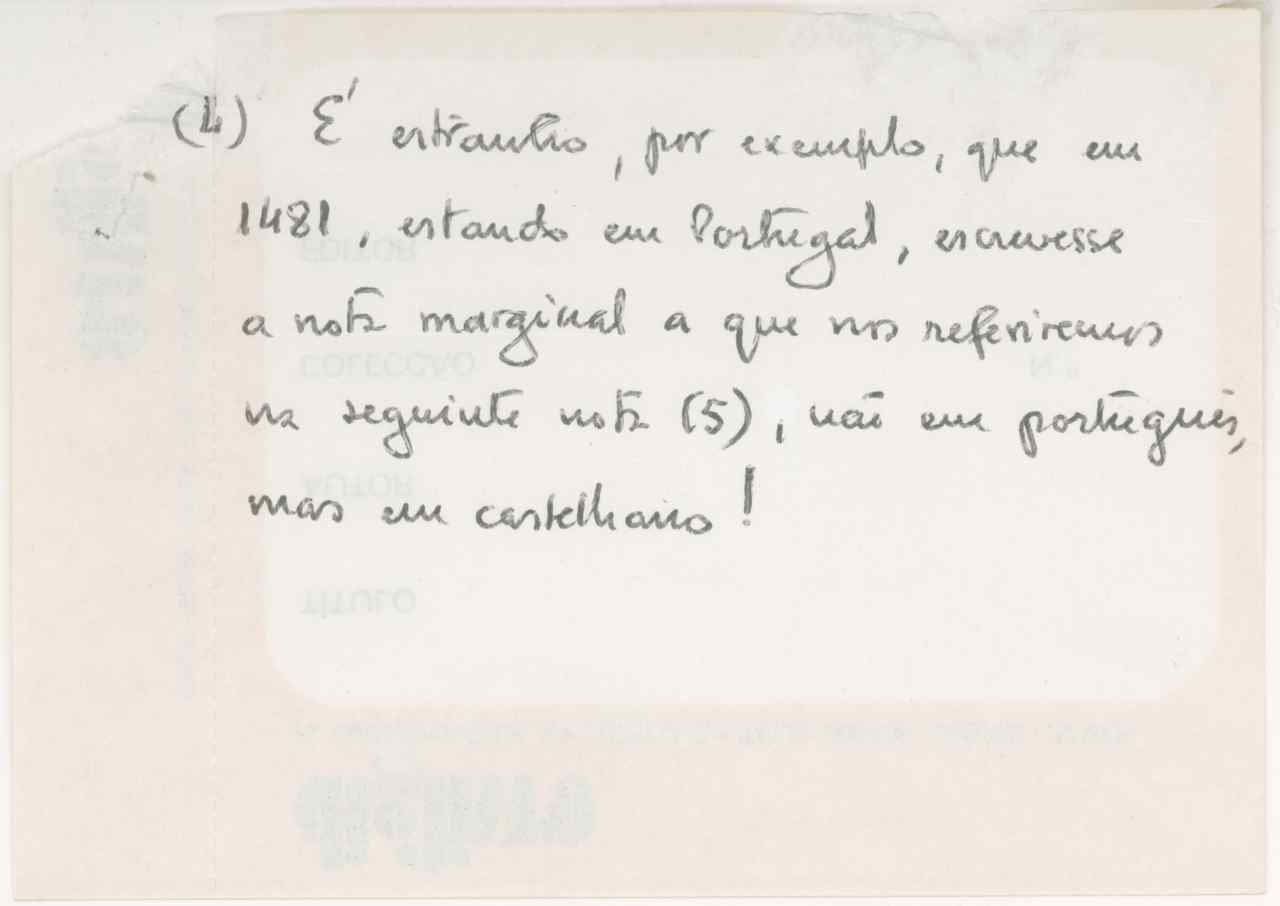 (4) É estranho, por exemplo, que em
1481, estando em Portugal, escrevesse
a nota marginal a que nos referiremos
na seguinte nota (5), não em português,
mas em castelhano!
EDITOR
COLECÇÃO
N.º
AUTOR
TÍTULO